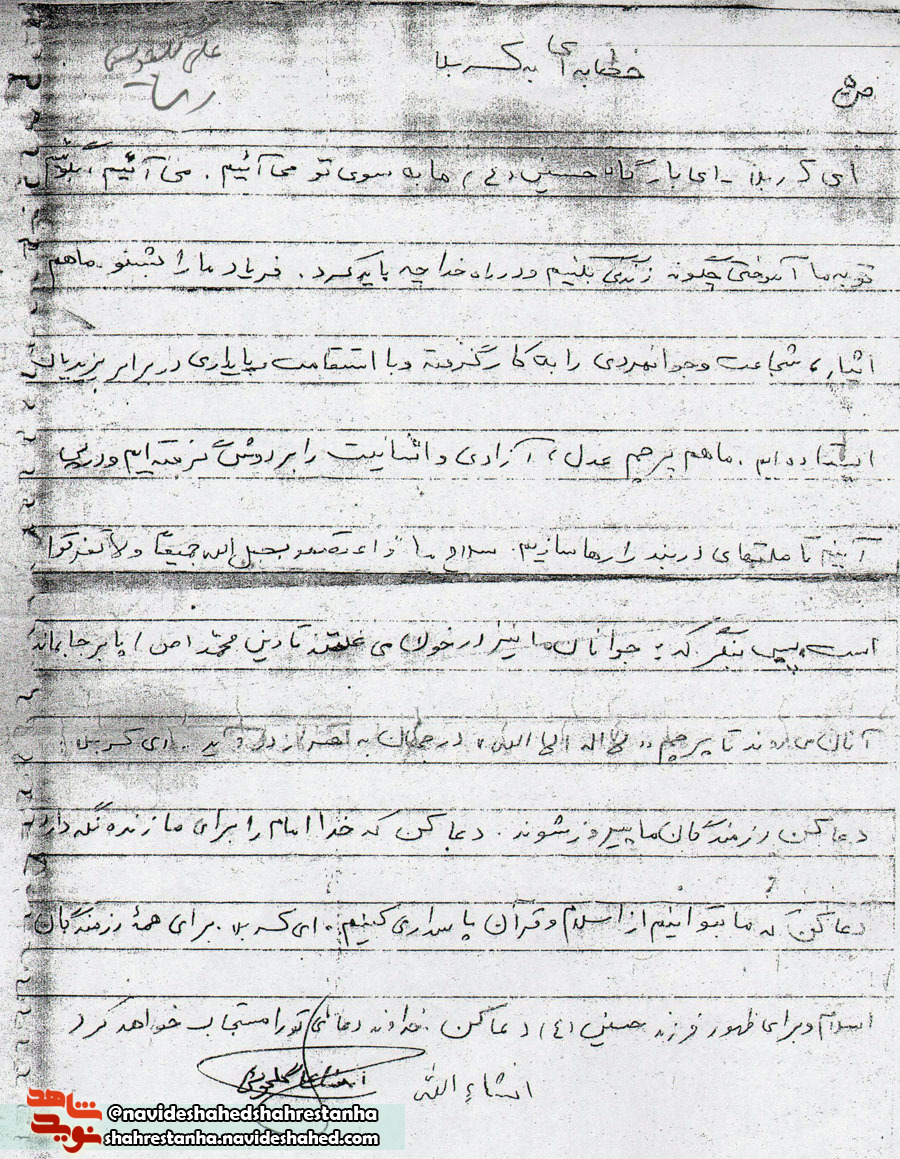 خطابه ای به کربلا
ص ۵
ای کربلا - ای بارگاه حسین (ع) ما به سوی تو می آئیم. می آئیم، بگوئیم
تو به ما آموختی چگونه زندگی بکنیم و در راه خدا چه باید کرد. فریاد ما را بشنو. ما هم
ایثار، شجاعت و جوانمردی را به کار گرفته و با استقامت و پایداری در برابر یزیدیان
ایستاده ایم. ما هم پرچم عدل، آزادی و انسانیت را بر دوش گرفته ایم و در پی
آنیم تا ملتهای در بند را رها سازیم. سلاح ما "واعتصموا بحبل الله جمیعاً ولا تفرقوا
است پس بنگر که: جوانان ما نیز در خون می غلتند تا دین محمّد (ص) پا بر جا بماند
آنان می روند تا پرچم "لا اله الا الله" در جهان به اهتزاز در آید. ای کربلا:
دعا کن رزمندگان ما پیروز شوند. دعا کن که خدا امام را برای ما زنده نگه دارد
دعا کن که ما بتوانیم از اسلام و قرآن پاسداری کنیم. ای کربلا. برای همۀ رزمندگان
اسلام و برای ظهور فرزند حسین (ع) دعا کن. خداوند دعای تو را مستجاب خواهد کرد
انشاءالله
شاهد
نوید
@navideshahedshahrestanha
shahrestanha.navideshahed.com